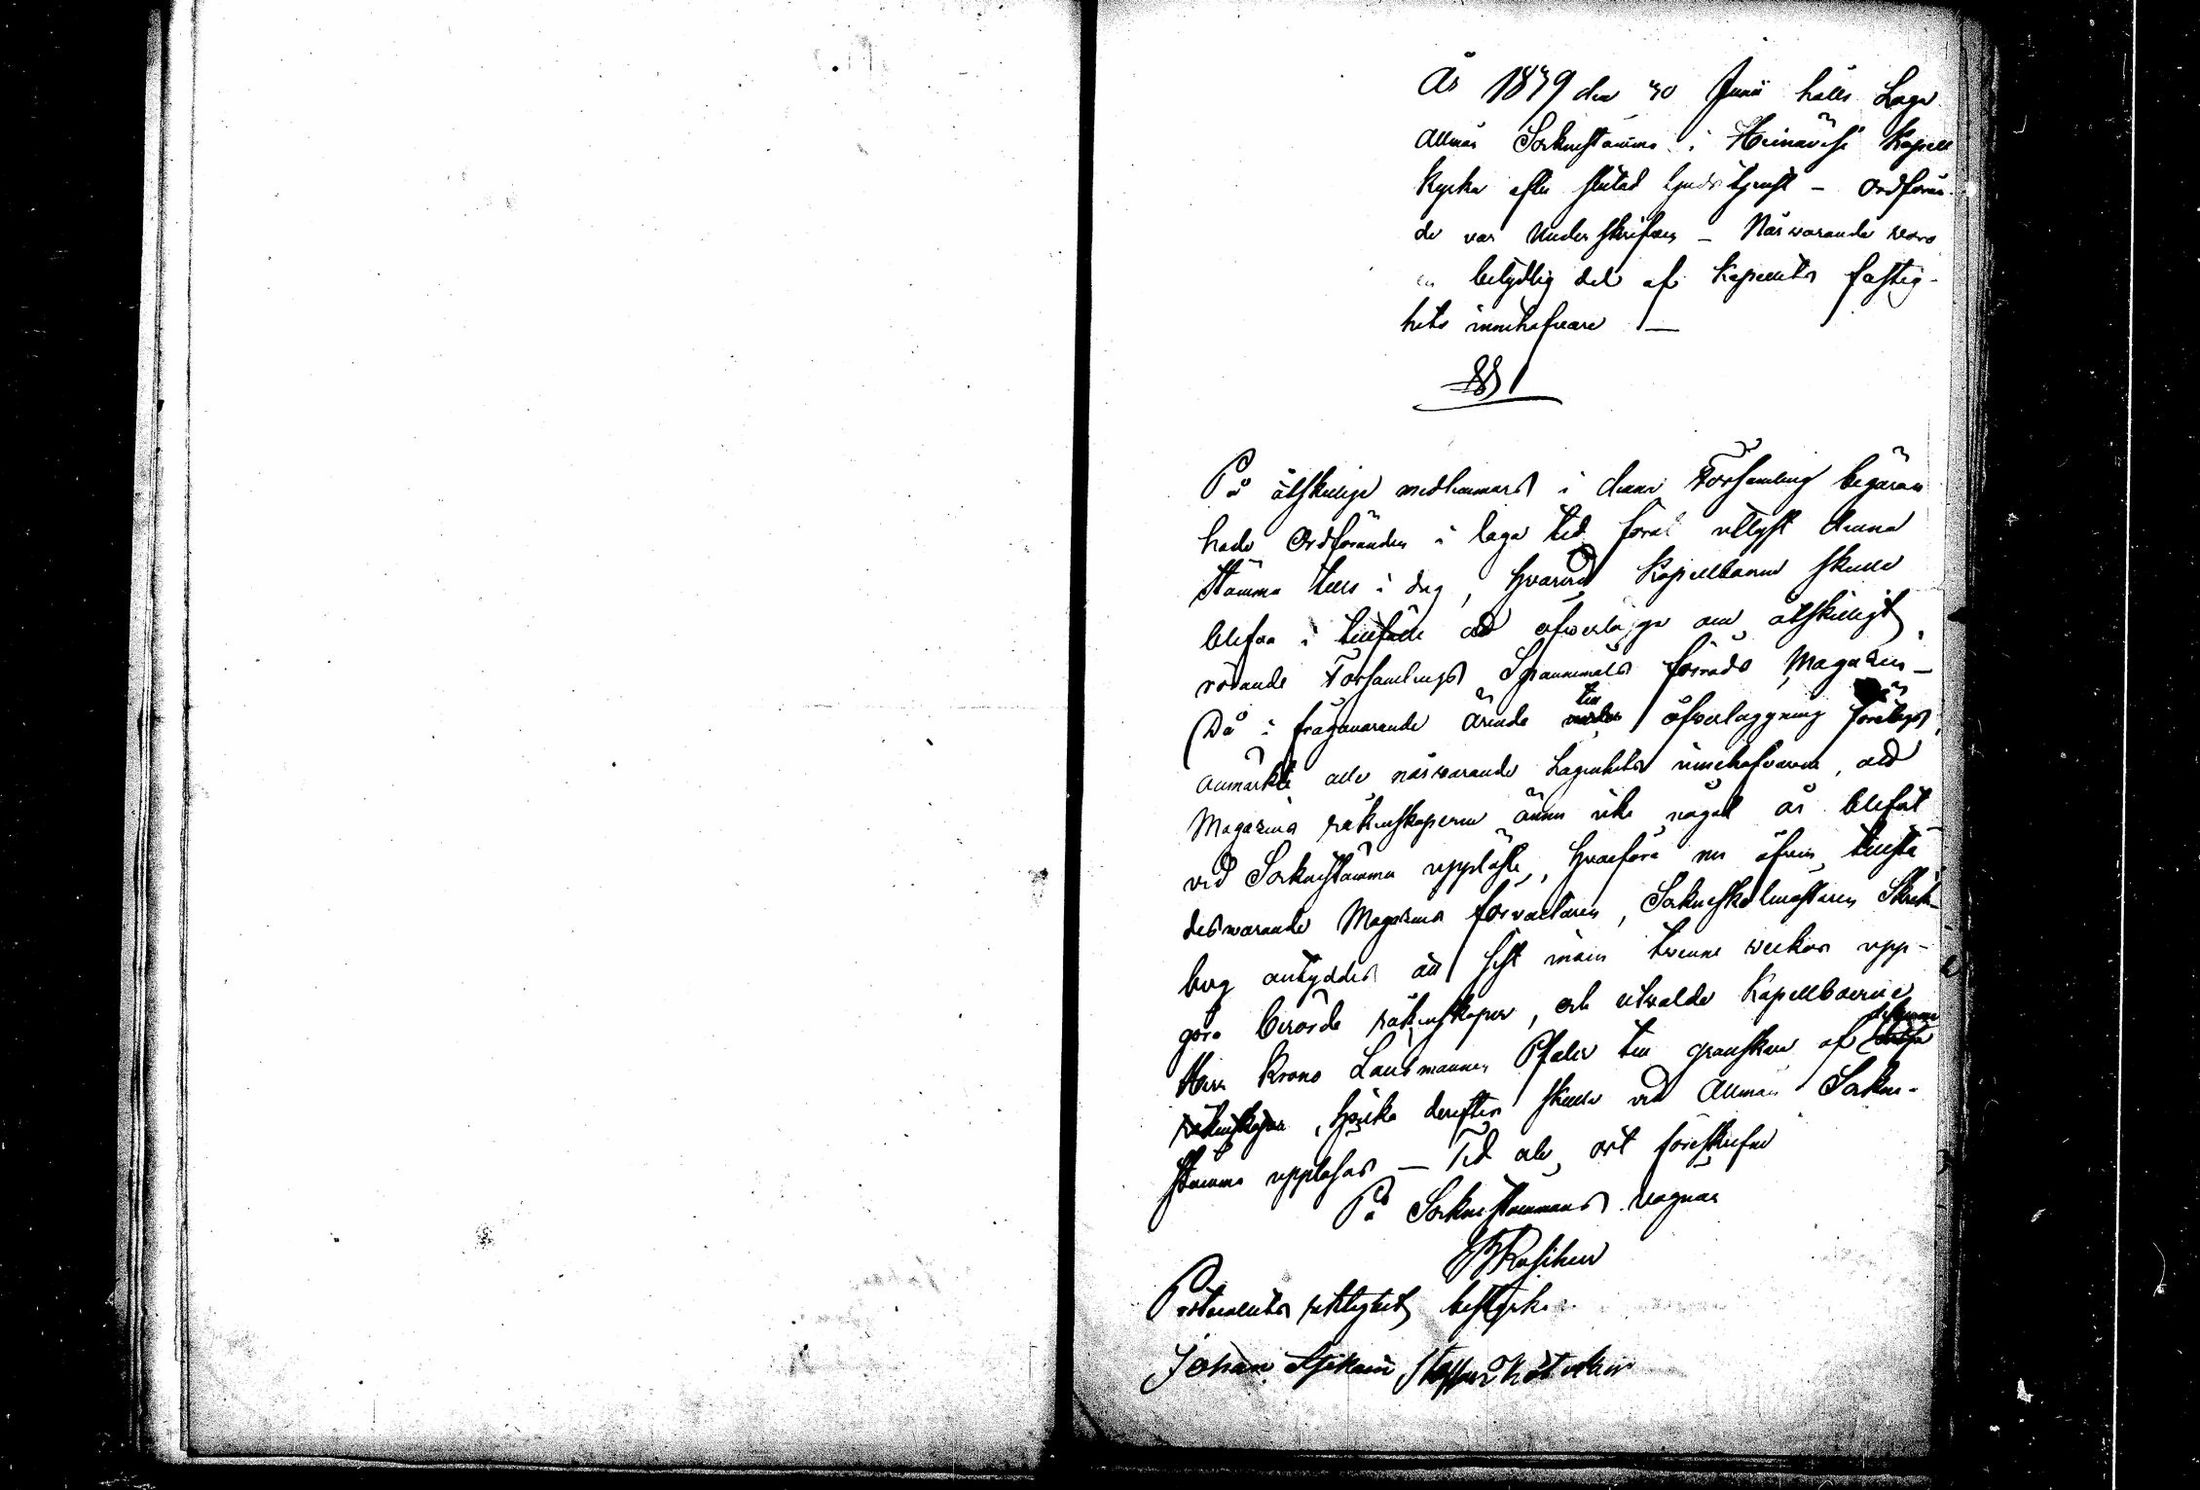 År 1839 den 30 Junii hölls Laga
Allmän Socknestämma i Heinävesi Kapell
Kyrka efter slutad Gudstjenst – Ordföran-
de var Underskrifven – Närvarande voro
en betydlig del af Kapellets fastig-
hets innehafvare —
§ 1
På åtskillige medlemmars i denna Församling begäran
hade Ordföranden i laga tid förut utlyst denna
Stämma till i dag, hvarvid Kapellboerne skulle
blifva i tillfälle att öfverlägga om åtskilligt
rörande Församlings Spannmåls förråds Magasin –
Då i frågavarande ärende till öfverläggning företogs,
anmärkte alle närvarande Lägenhets innehafvarne, att
Magasins räkenskaperne ännu icke något år blifvit
vid Sockenstämma uppläste, hvarföre nu äfven tillstä-
desvarande Magasins förvaltaren, Sockneskolmästaren
antyddes att sist inom trenne veckor upp-
göra berörde räkenskaper, och utvalde Kapellboerne
Herr Krono Länsmannen Pfaler till granskare af desamme
räkenskaper, hvilka derefter skulle vid Allmän Sockne-
stämma uppläsas — Tid och ort föreskrifne
På Sockenstämmans vägnar
Protocollets riktighet bestyrka
Johan Staffan